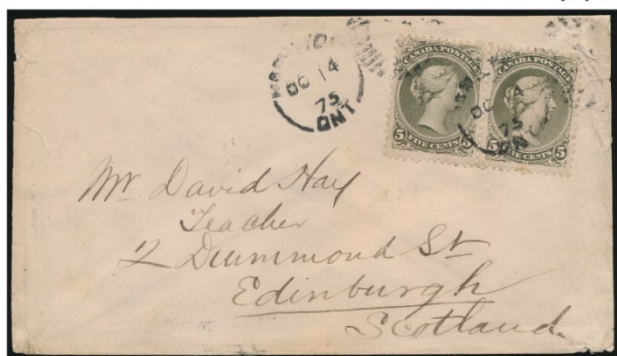 HAMILTON
OC 14
75
ONT
CANADA POSTAGE
5 FIVE CENTS 5
CANADA POSTAGE
5 FIVE CENTS 5
OC 14
75
ONT
Mr David Hay
Teacher
2 Drummond St
Edinburgh
Scotland